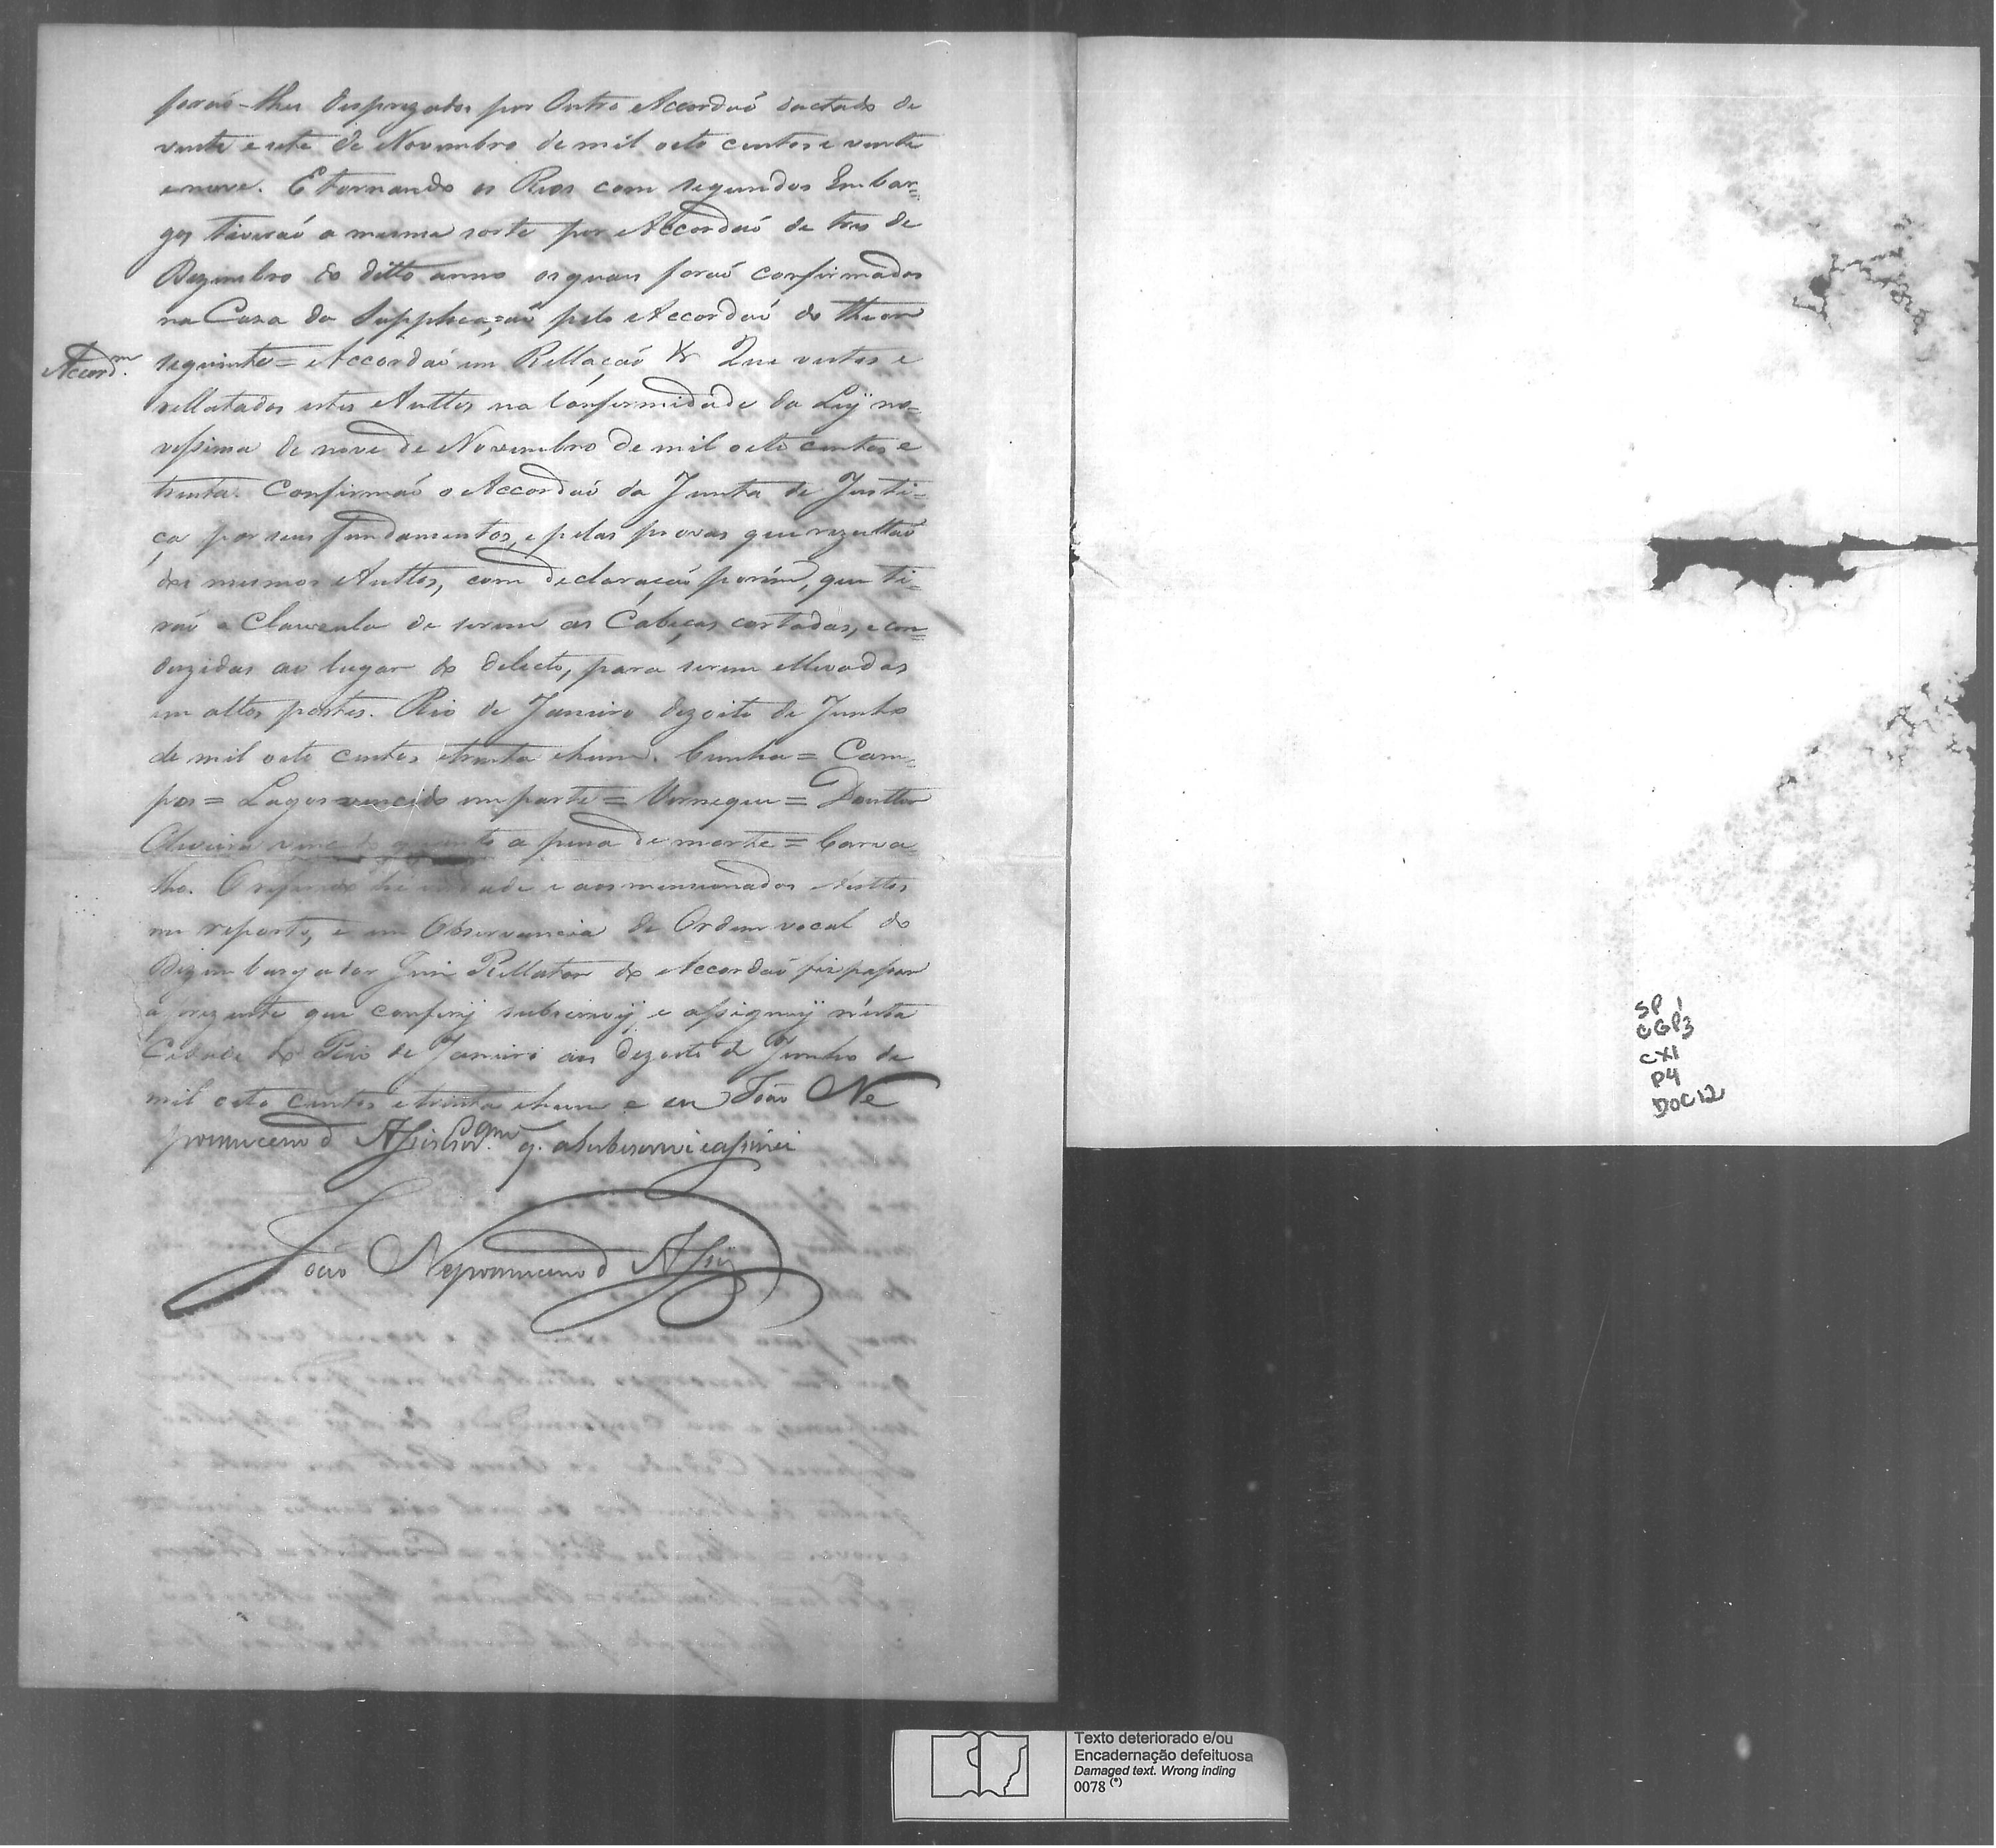 foraõ-lhes desprezados por Outro Accordaõ dactado de
vinte e sete de Novembro de mil oito centos e vinte
e nove. E tornando os Reos com segundos Embar=
gos tiveraõ a mesma sorte por Accordaõ de tres de
Dezembro do ditto anno os quaes foraõ confirmados
na Casa da Supplicaçaõ pelo Accordaõ do theor
Accord.m seguinte = Accordaõ em Rellaçaõ &r Que vistos e
rellatados estes Auttos na Conformidade da Ley no=
vissima de nove de Novembro de mil oito centos e
trinta. Confirmaõ o Accordaõ da Junta de Justi=
ça por seus fundamentos, e pelas provas que rezultaõ
dos mesmos Auttos, com declaraçaõ porém, que ti=
raõ a Clauzula de serem as Cabeças cortadas, e con=
duzidas ao lugar do delicto, para serem ellevadas
em altos postes. Rio de Janeiro dezoito de Junho
de mil oito centos e trinta e hum. Cunha = Cam=
pos = Lagos vencido em parte = Vernegue = Doutter
Oliveira vencido quanto a pena de morte = Carva=
lho. O referido hé verdade e aos mensionados Auttos
me reporto, e em Observancia de Ordem vocal do
Dezembargador Juis Rellator do Accordaõ fiz passar
a prezente que conferij subscrevij e assignej nésta
Cidade do Rio de Janeiro aos dezoito de Junho de
mil oito centos e trinta e hum e eu João Ne
pomuceno d Assis q. a subscrevi e assinei
João Nepomuceno d Assis
SP 1
CGP3
CX1
P4
DOC12
Texto deteriorado e/ou
Encadernação defeituosa
Damaged text. Wrong inding
0078 (*)